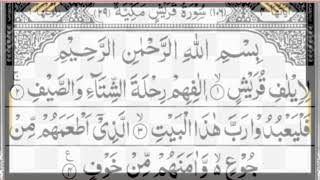 (١٠٦) سُوْرَةُ قُرَيْشٍ مَكِّيَّةٌ (٢٩)
بِسْمِ اللهِ الرَّحْمٰنِ الرَّحِيْمِ
لِاِيْلٰفِ قُرَيْشٍ ۙ﴿١﴾ اٖلٰفِهِمْ رِحْلَةَ الشِّتَآءِ وَالصَّيْفِ ۚ﴿٢﴾
فَلْيَعْبُدُوْا رَبَّ هٰذَا الْبَيْتِ ۙ﴿٣﴾ الَّذِيْۤ اَطْعَمَهُمْ مِّنْ
جُوْعٍ ۙ۬ وَّاٰمَنَهُمْ مِّنْ خَوْفٍ ﴿٤﴾